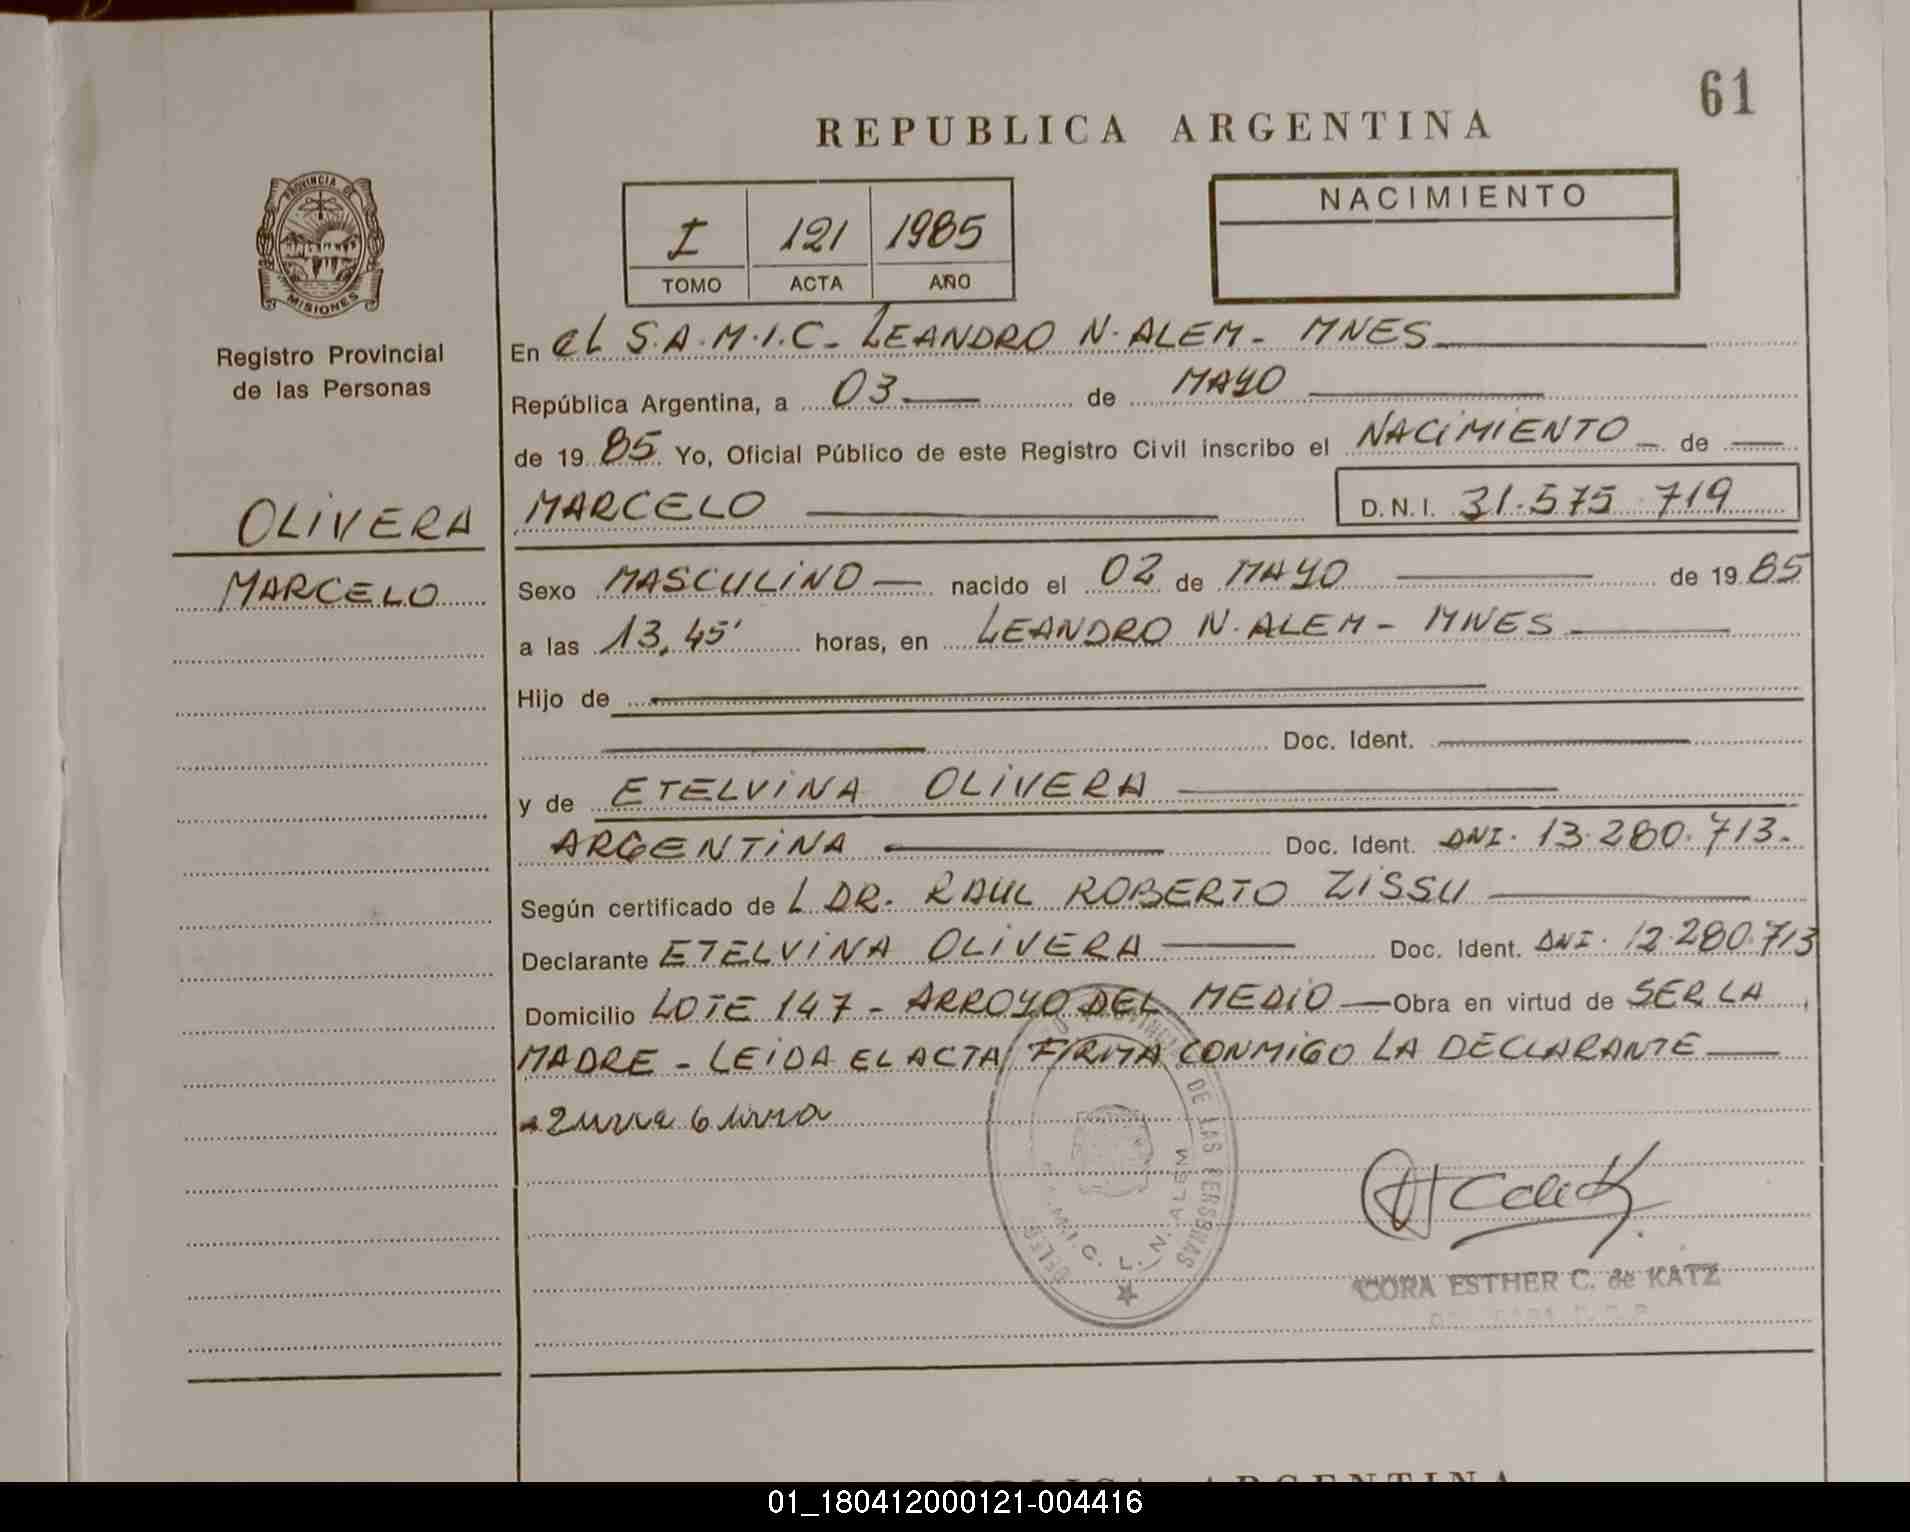 61
REPUBLICA ARGENTINA
PROVINCIA DE
MISIONES
Registro Provincial
de las Personas
OLIVERA
MARCELO
I 121 1985
TOMO ACTA AÑO
NACIMIENTO
En el S.A.M.I.C- LEANDRO N. ALEM- MNES
República Argentina, a 03 de MAYO
de 19 85 Yo, Oficial Público de este Registro Civil inscribo el NACIMIENTO de
MARCELO D.N.I. 31.575.719
Sexo MASCULINO nacido el 02 de MAYO de 19 85
a las 13,45' horas, en LEANDRO N. ALEM - MNES
Hijo de
Doc. Ident.
y de ETELVINA OLIVERA
ARGENTINA Doc. Ident. DNI. 13.280.713.
Según certificado de L DR. RAUL ROBERTO ZISSU
Declarante ETELVINA OLIVERA Doc. Ident. DNI. 12.280.713
Domicilio LOTE 147 - ARROYO DEL MEDIO Obra en virtud de SER LA
MADRE - LEIDA EL ACTA FIRMA CONMIGO LA DECLARANTE
DE LAS PERSONAS
M.I.C. L. N. ALEM
CORA ESTHER C. de KATZ
REPUBLICA ARGENTINA
01_180412000121-004416